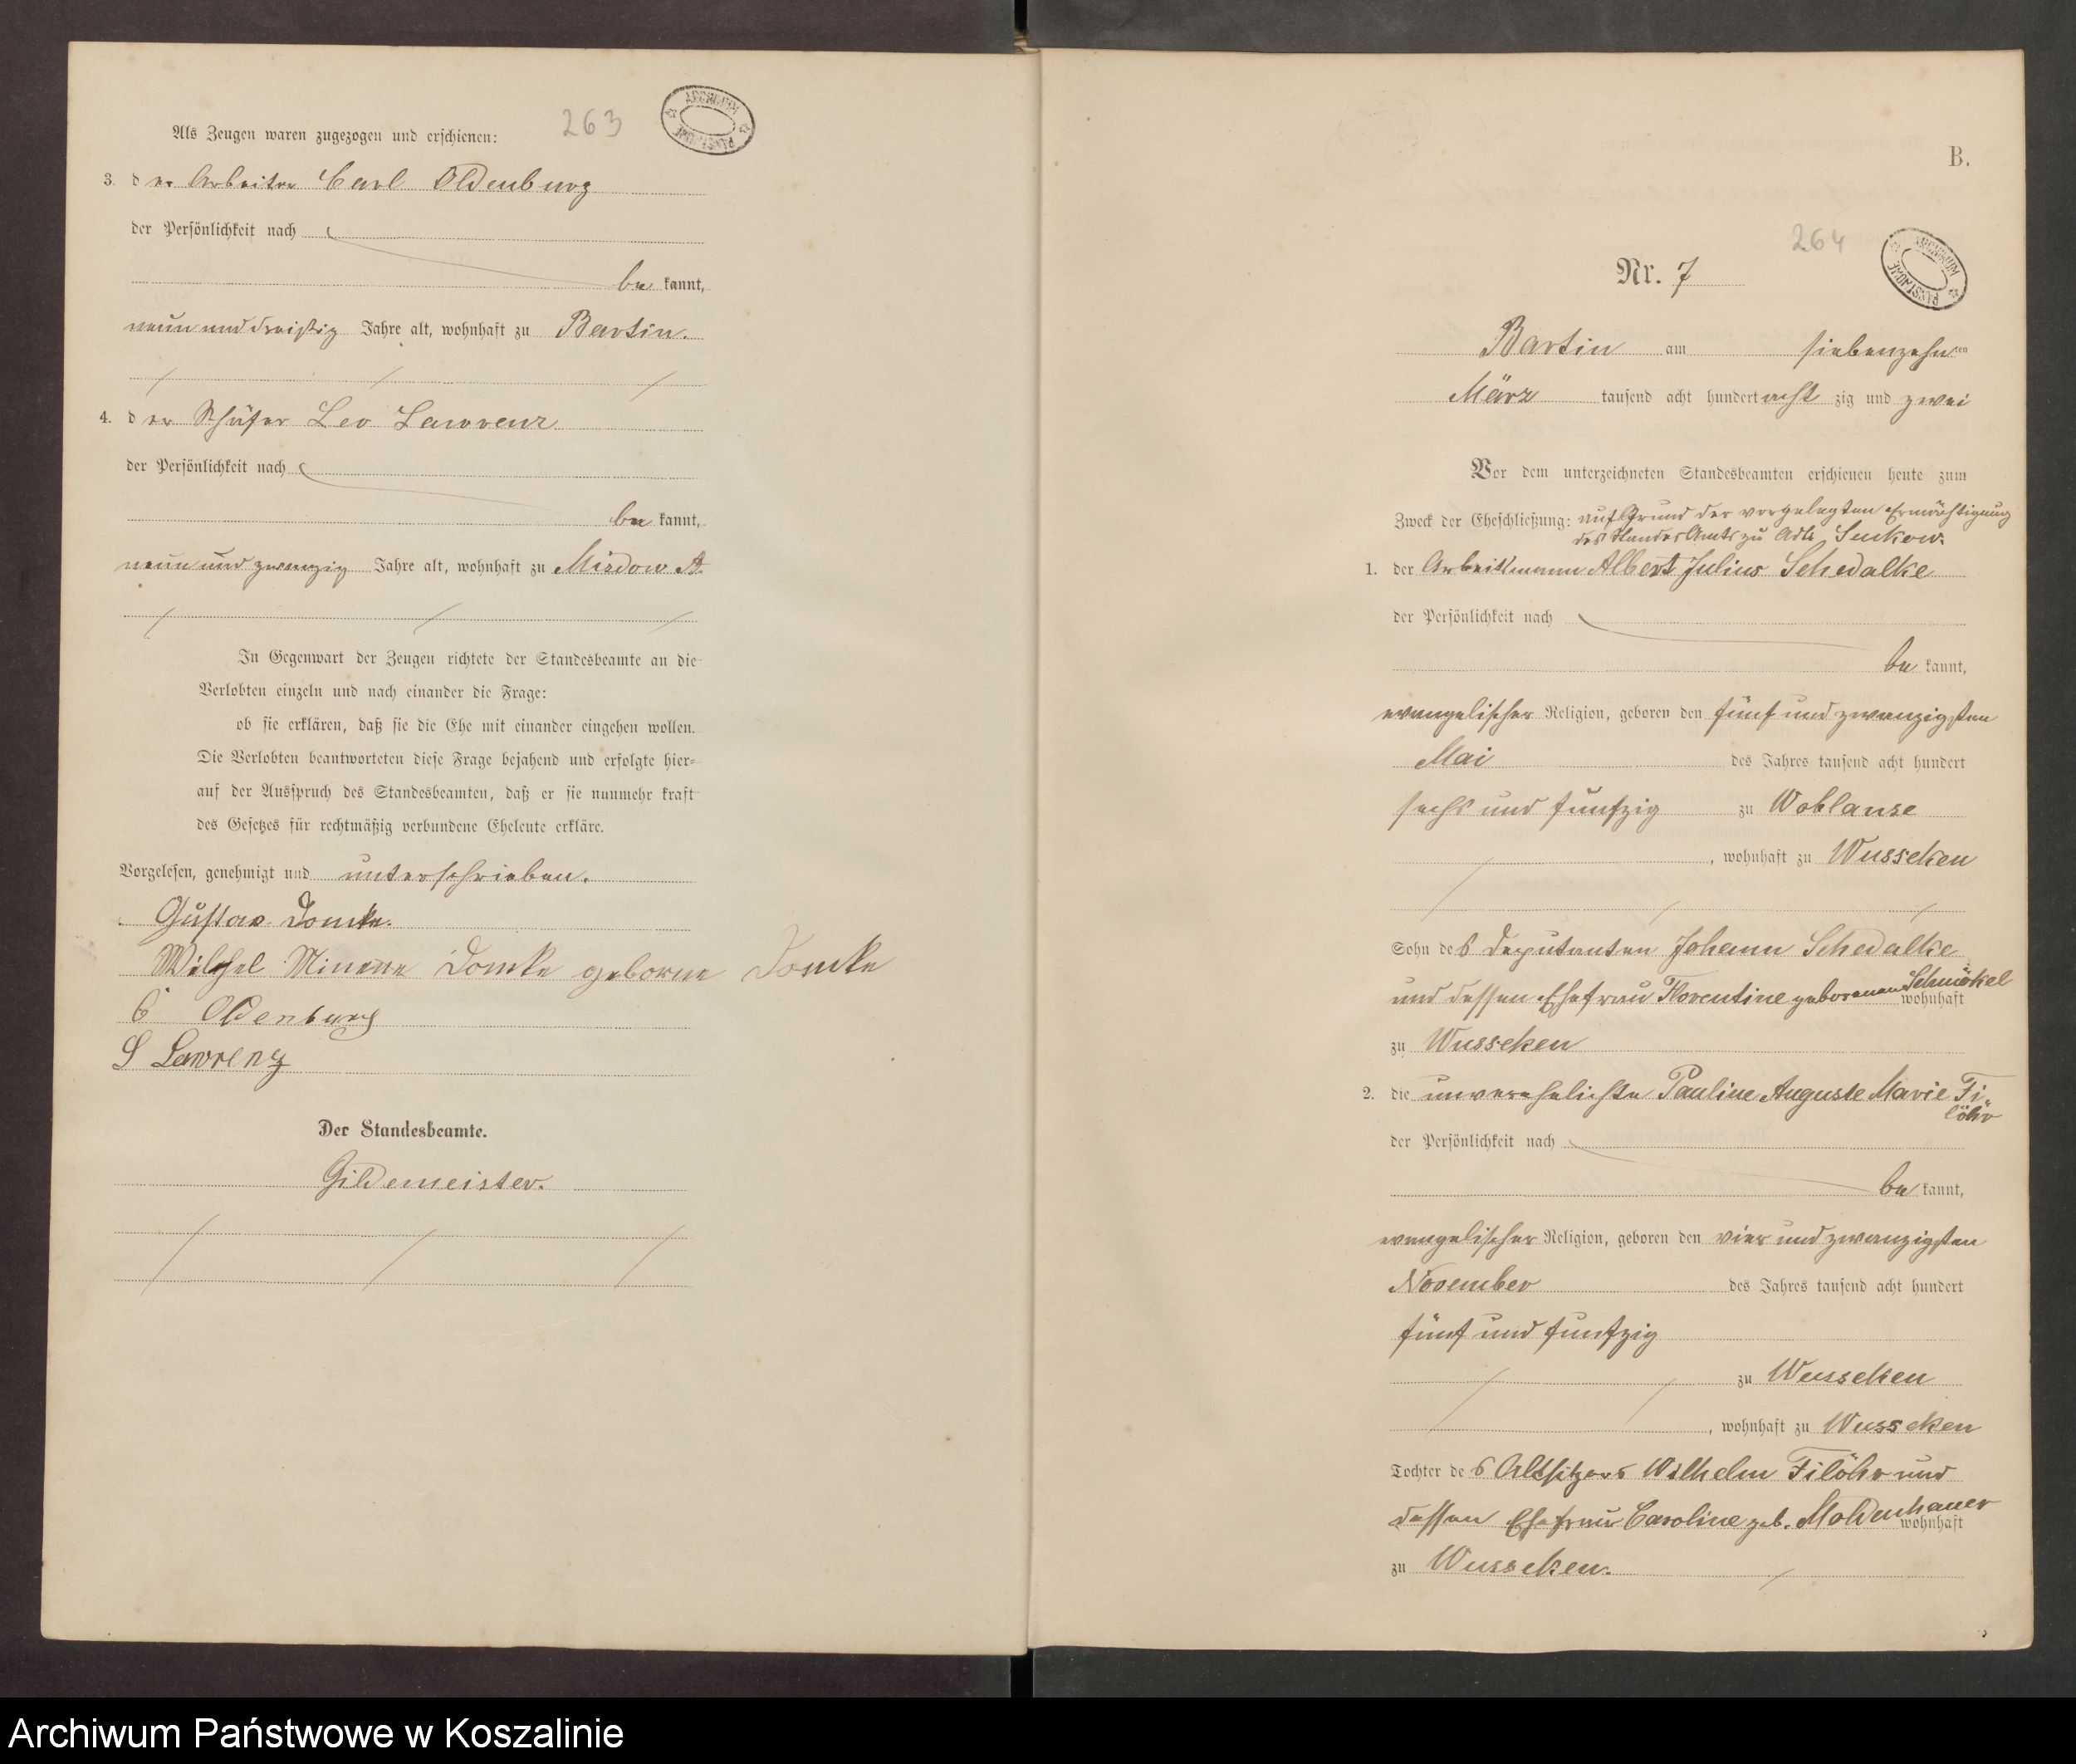 Als Zeugen waren zugezogen und erschienen:
263
ARCHIWUM PAŃSTWOWE
3. der Arbeiter Carl Oldenburg
der Persönlichkeit nach
be kannt,
neun und dreißig Jahre alt, wohnhaft zu Bartin.
4. der Schäfer Leo Lawrenz
der Persönlichkeit nach
be kannt,
neun und zwanzig Jahre alt, wohnhaft zu Misdow A.
In Gegenwart der Zeugen richtete der Standesbeamte an die
Verlobten einzeln und nach einander die Frage:
ob sie erklären, daß sie die Ehe mit einander eingehen wollen.
Die Verlobten beantworteten diese Frage bejahend und erfolgte hier-
auf der Ausspruch des Standesbeamten, daß er sie nunmehr kraft
des Gesetzes für rechtmäßig verbundene Eheleute erkläre.
Vorgelesen, genehmigt und unterschrieben.
Gustav Domke.
Domke geborne Domke
C Oldenburg
L Lawrenz
Der Standesbeamte.
Gildemeister.
B.
264
ARCHIWUM PAŃSTWOWE
Nr. 7
Bartin am siebenzehn ten
März tausend acht hundert acht zig und zwei
Vor dem unterzeichneten Standesbeamten erschienen heute zum
Zweck der Eheschließung: auf Grund der vorgelegten Ermächtigung
des Standes Amts zu Adl. Suckow.
1. der Arbeitsmann Albert Julius Schedalke
der Persönlichkeit nach
be kannt,
evangelischer Religion, geboren den fünf und zwanzigsten
Mai des Jahres tausend acht hundert
sechs und funfzig zu Woblanse
, wohnhaft zu Wusseken
Sohn des Deputanten Johann Schedalke
und dessen Ehefrau Florentine geborenen Schmökel
wohnhaft
zu Wusseken
2. die unverehelichte Pauline Auguste Marie Fi-
löhr
der Persönlichkeit nach
be kannt,
evangelischer Religion, geboren den vier und zwanzigsten
November des Jahres tausend acht hundert
fünf und funfzig
zu Wusseken
, wohnhaft zu Wusseken
Tochter des Altsitzers Wilhelm Filöhr und
dessen Ehefrau Caroline geb. Moldenhauer
wohnhaft
zu Wusseken.
Archiwum Państwowe w Koszalinie